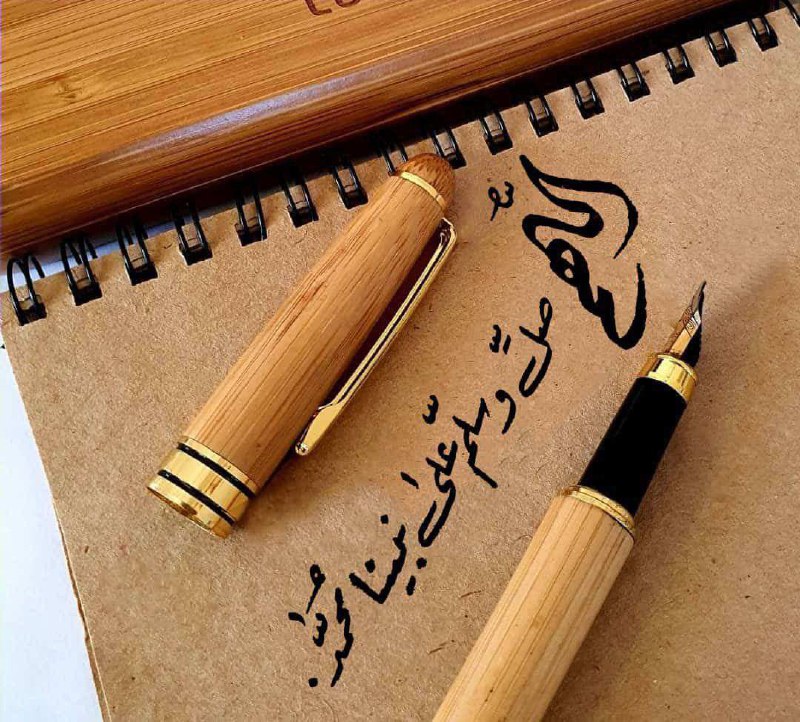 اللهم
صلِّ وسلم على نبينا محمد